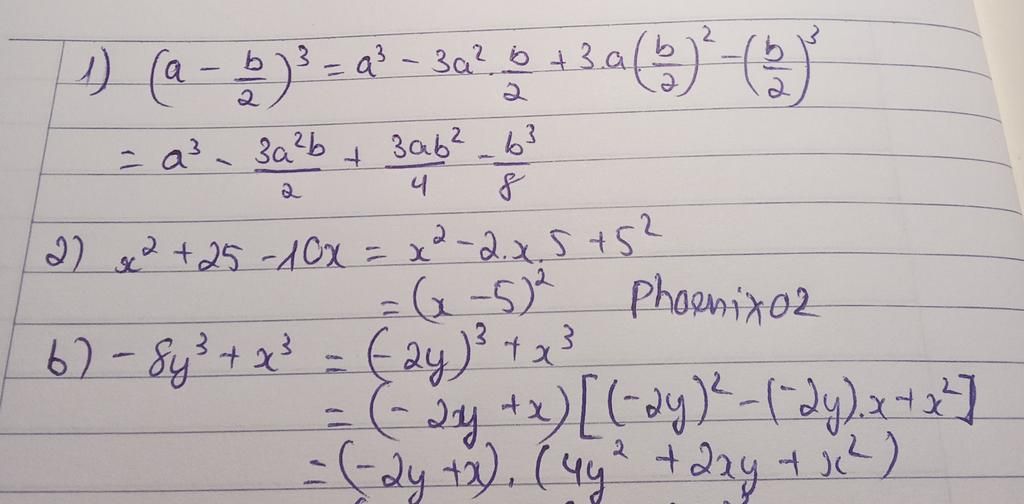 1) (a - b/2)³ = a³ - 3a².b/2 + 3.a(b/2)² - (b/2)³
= a³ - 3a²b/2 + 3ab²/4 - b³/8
2) x² + 25 - 10x = x² - 2.x.5 + 5²
= (x - 5)² Phoenix02
b) - 8y³ + x³ = (-2y)³ + x³
= (- 2y + x)[(-2y)² - (-2y).x + x²]
= (-2y + x).(4y² + 2xy + x²)